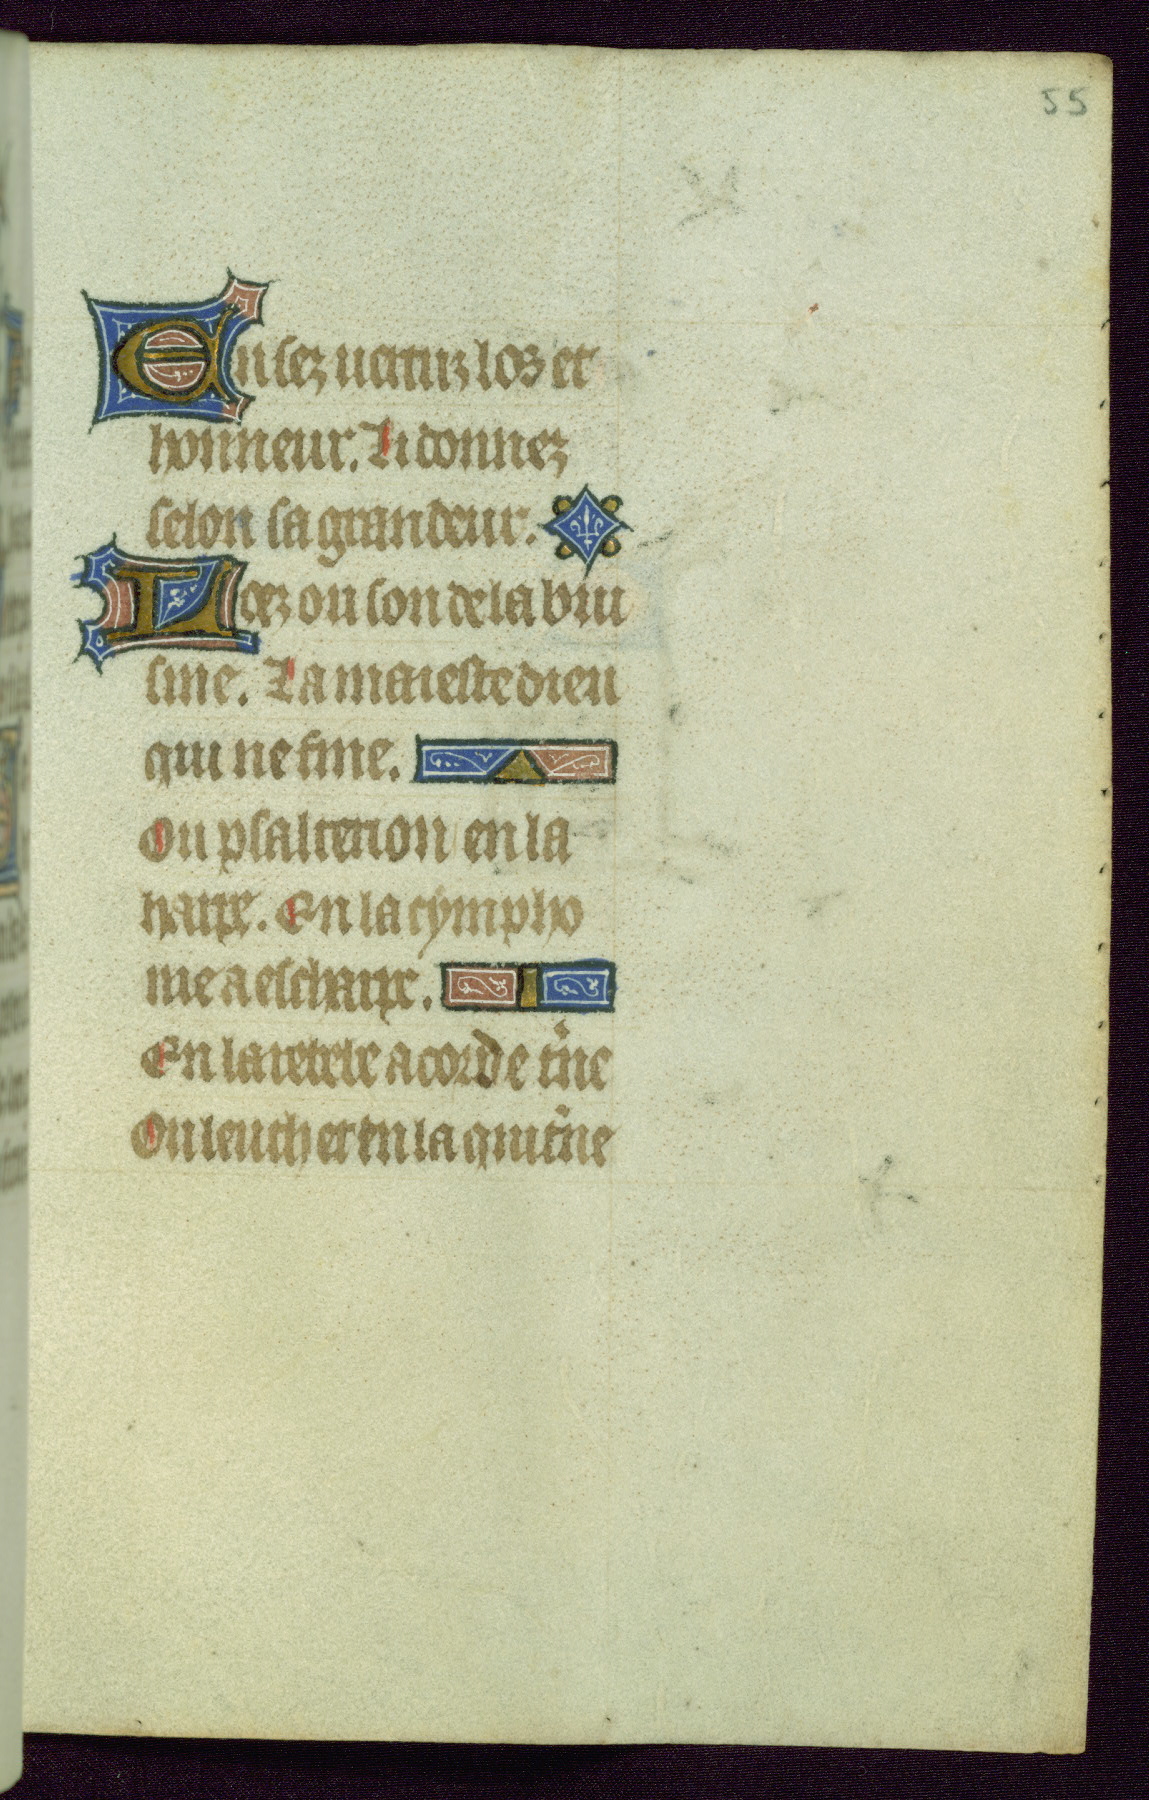 55
En sez uertuz los et
honneur. Li donnez
selon sa grandeur.
Loez ou son de la bui
sine. La maieste dieu
qui ne fine.
Ou psalterion en la
harpe. En la cympho
nie a escharpe.
En la rebebe acorde
Ou leuth et en la